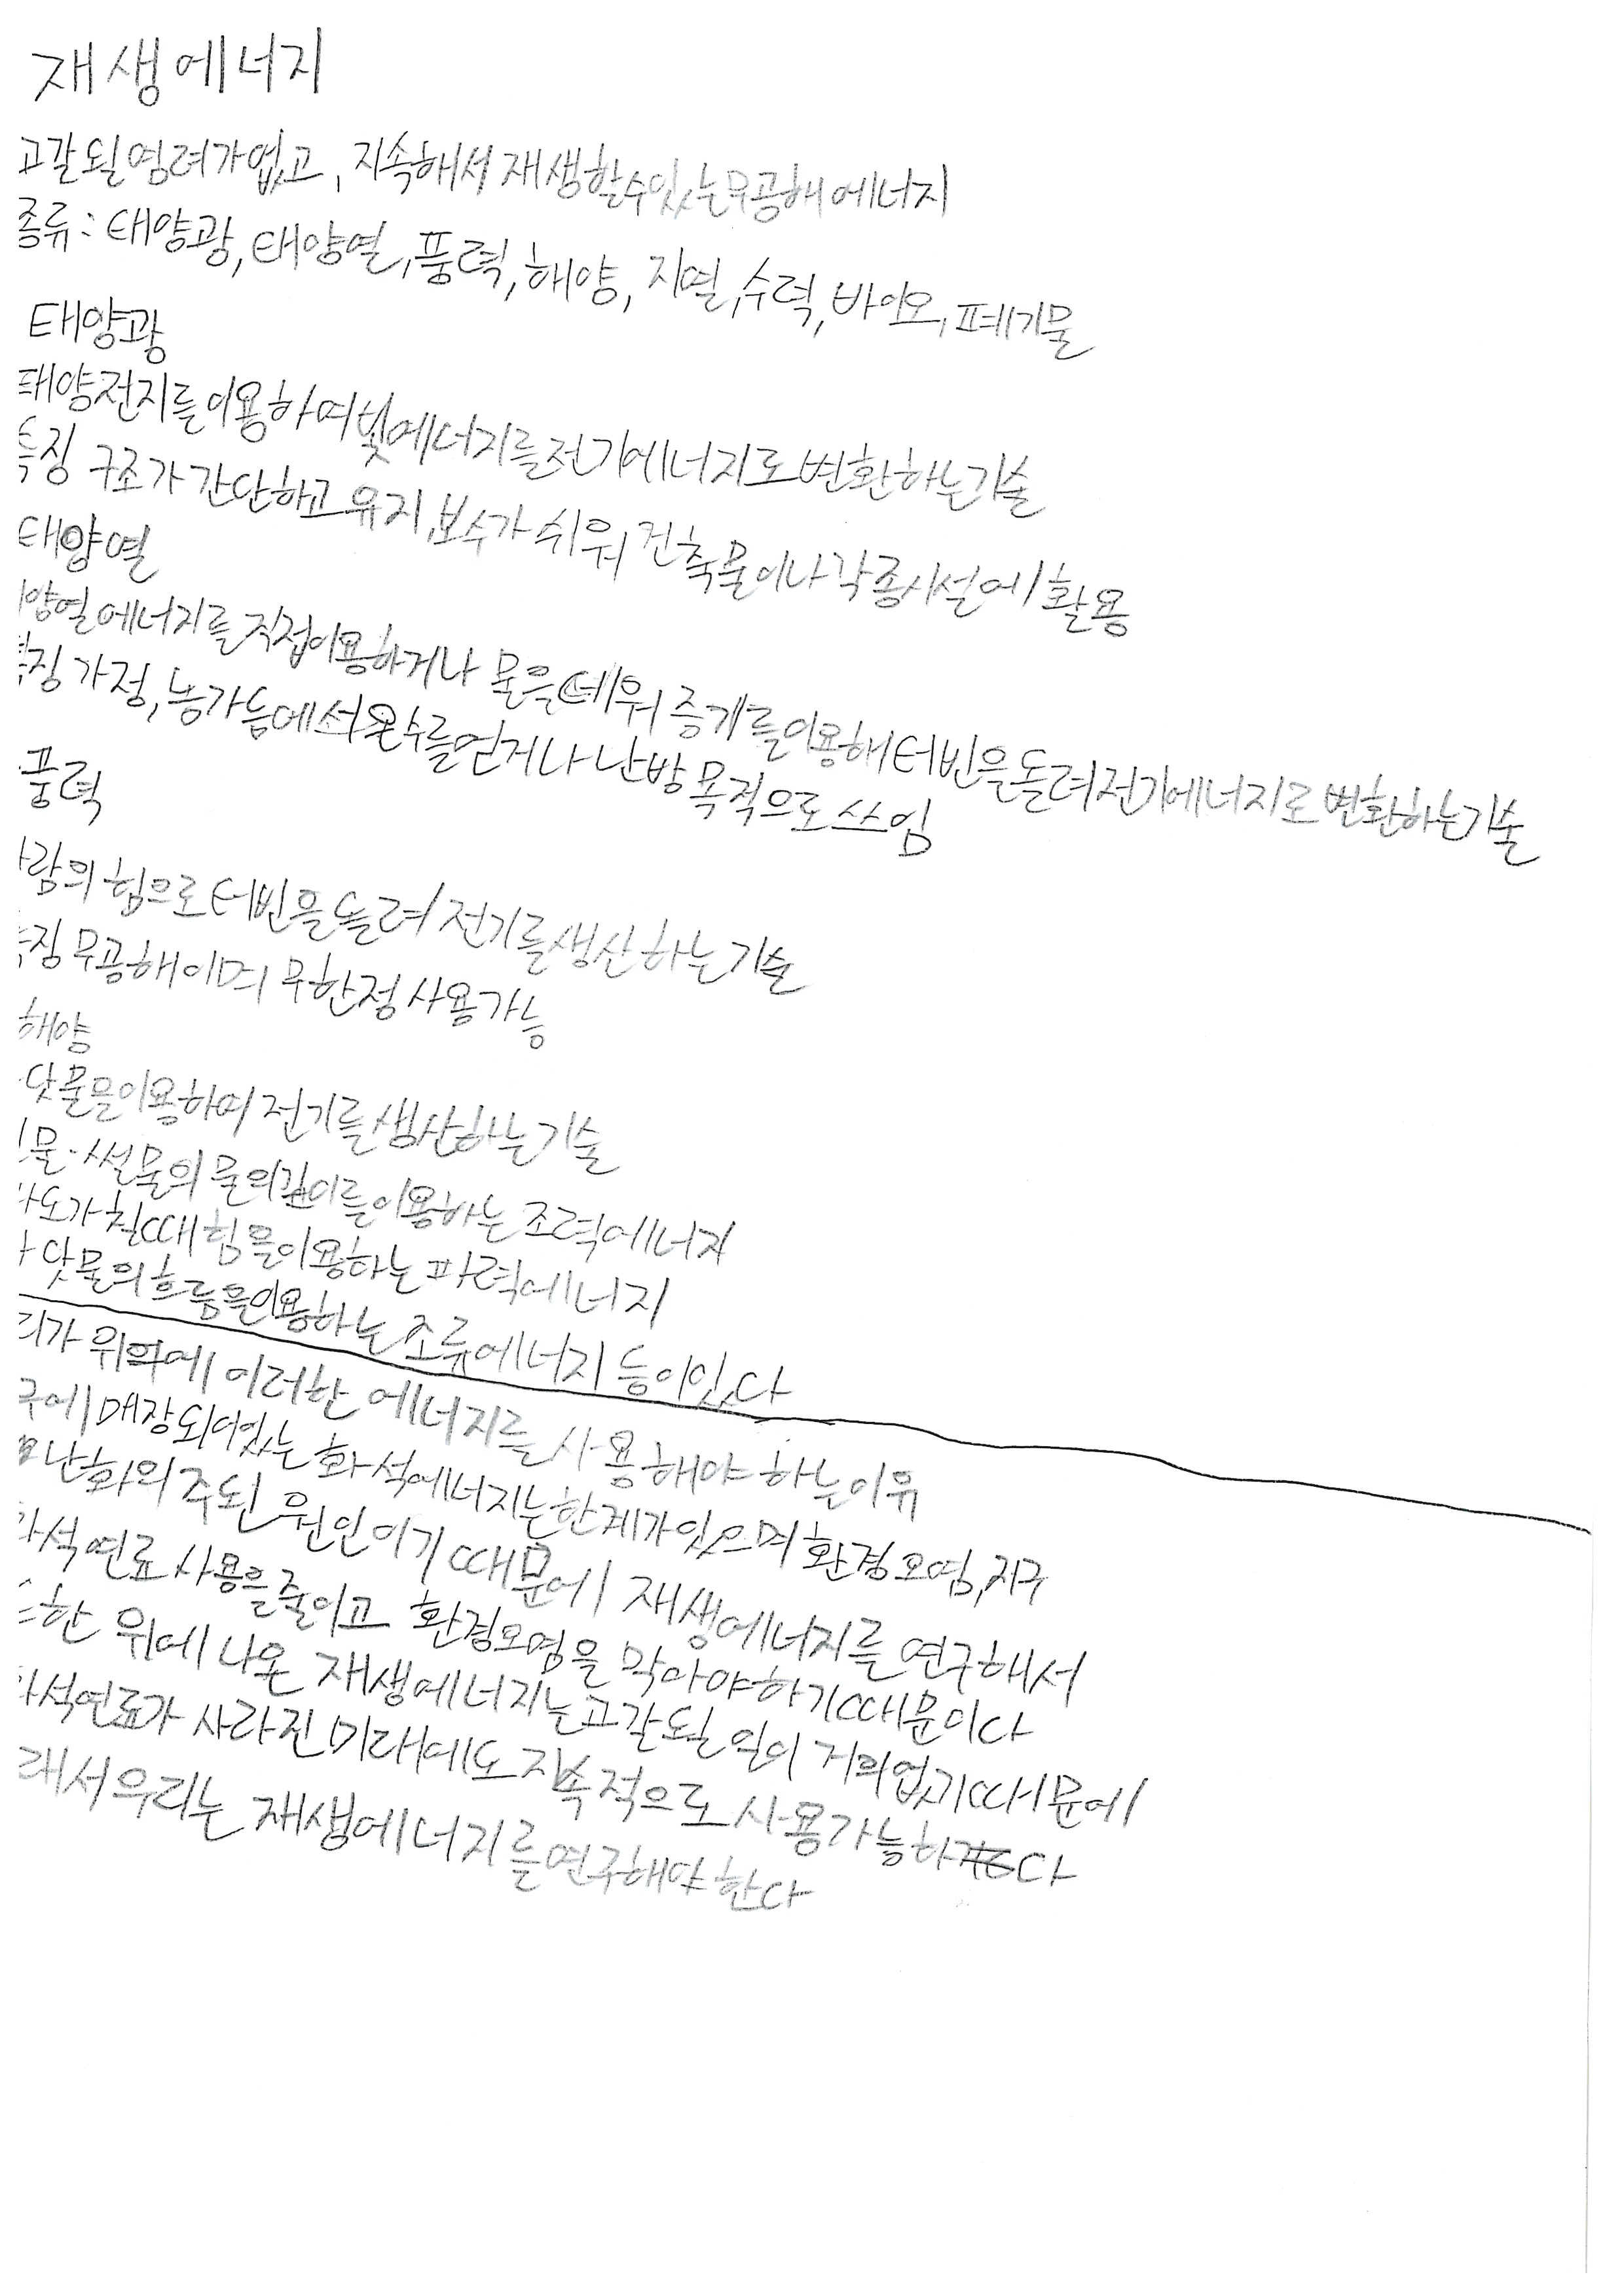 재생에너지
고갈될영려가없고, 지속해서 재생할수있는무공해에너지
종류: 태양광, 태양열, 풍력, 해양, 지열, 수력, 바이오, 폐기물
태양광
태양전지를이용하여빛에너지를전기에너지로변환하는기술
특징 구조가 간단하고 유지,보수가 쉬워 건축물이나 각종시설에 활용
태양열
양열에너지를 직접이용하거나 물을데워 증기를이용해터빈을돌려전기에너지로변환하는기술
징 가정,농가등에서온수를얻거나 난방목적으로쓰임
풍력
람의 힘으로 터빈을돌려 전기를생산하는기술
징 무공해이며 무한정 사용가능
해양
닷물을이용하여 전기를 생산하는기술
물·썰물의 물의깊이를이용하는 조력에너지
도가칠때 힘을이용하는 파력에너지
닷물의흐름을이용하는 조류에너지 등이있다
리가 위의에 이러한 에너지를 사용해야 하는이유
구에 매장되어있는 화석에너지는한계가있으며 환경오염,지구
난화의 주된 원인이기 때문에 재생에너지를 연구해서
석연료 사용을줄이고 환경오염을 막아야하기때문이다
한 위에 나온 재생에너지는고갈될 일이 거의없기때문에
석연료가 사라진미래에도 지속적으로 사용가능하다
래서우리는 재생에너지를연구해야한다